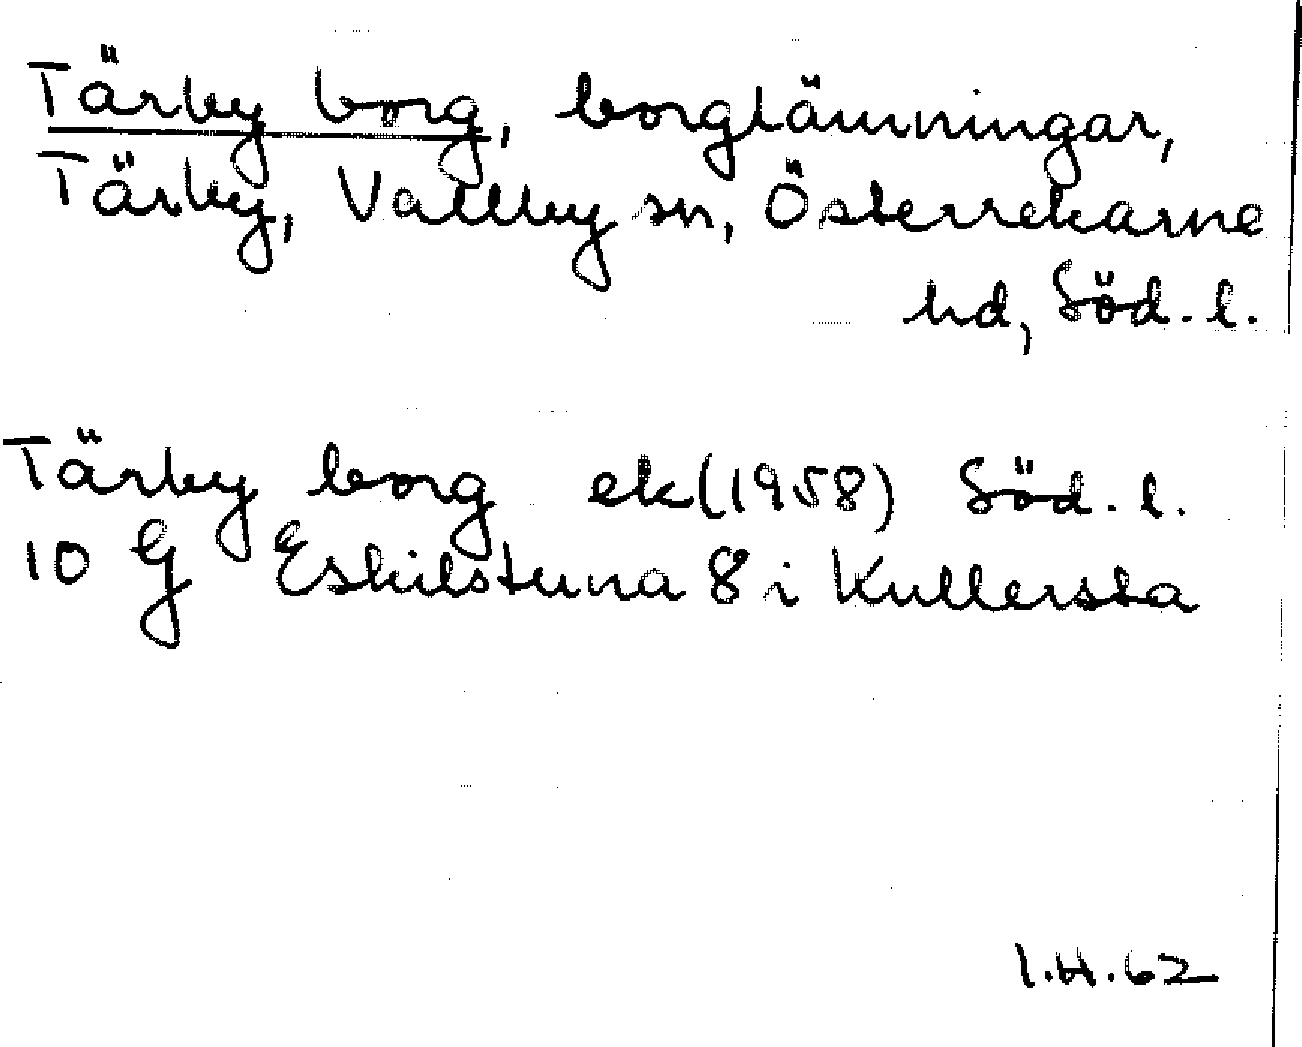 Tärby borg, borglämningar,
Tärby, Vallby sn, Österrekarne
hd, Söd. l.
Tärby borg ek (1958) Söd. l.
10 G Eskilstuna 8 i Kullersta
I.H. 62